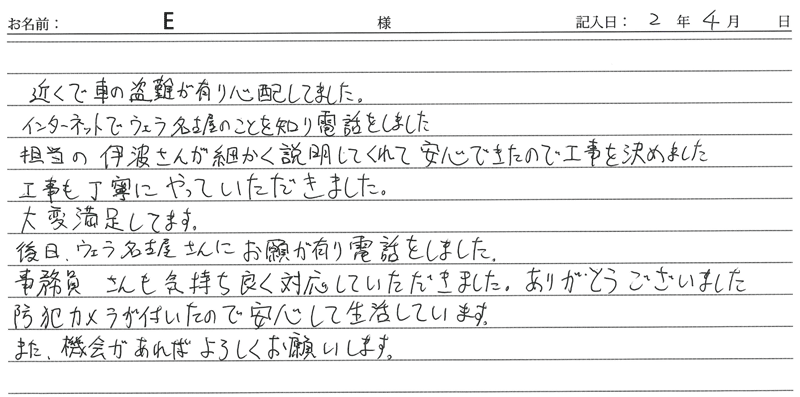 お名前： E 様 記入日： 2 年 4 月 日
近くで車の盗難が有り心配してました。
インターネットでウェラ名古屋のことを知り電話をしました
担当の 伊波さんが細かく説明してくれて 安心できたので工事を決めました
工事も丁寧に やっていただきました。
大変満足してます。
後日、ウェラ名古屋 さんに お願が有り 電話をしました。
事務員 さんも気持ち良く対応していただきました。ありがとうございました
防犯カメラが付いたので 安心して生活しています。
また、機会があれば よろしくお願いします。